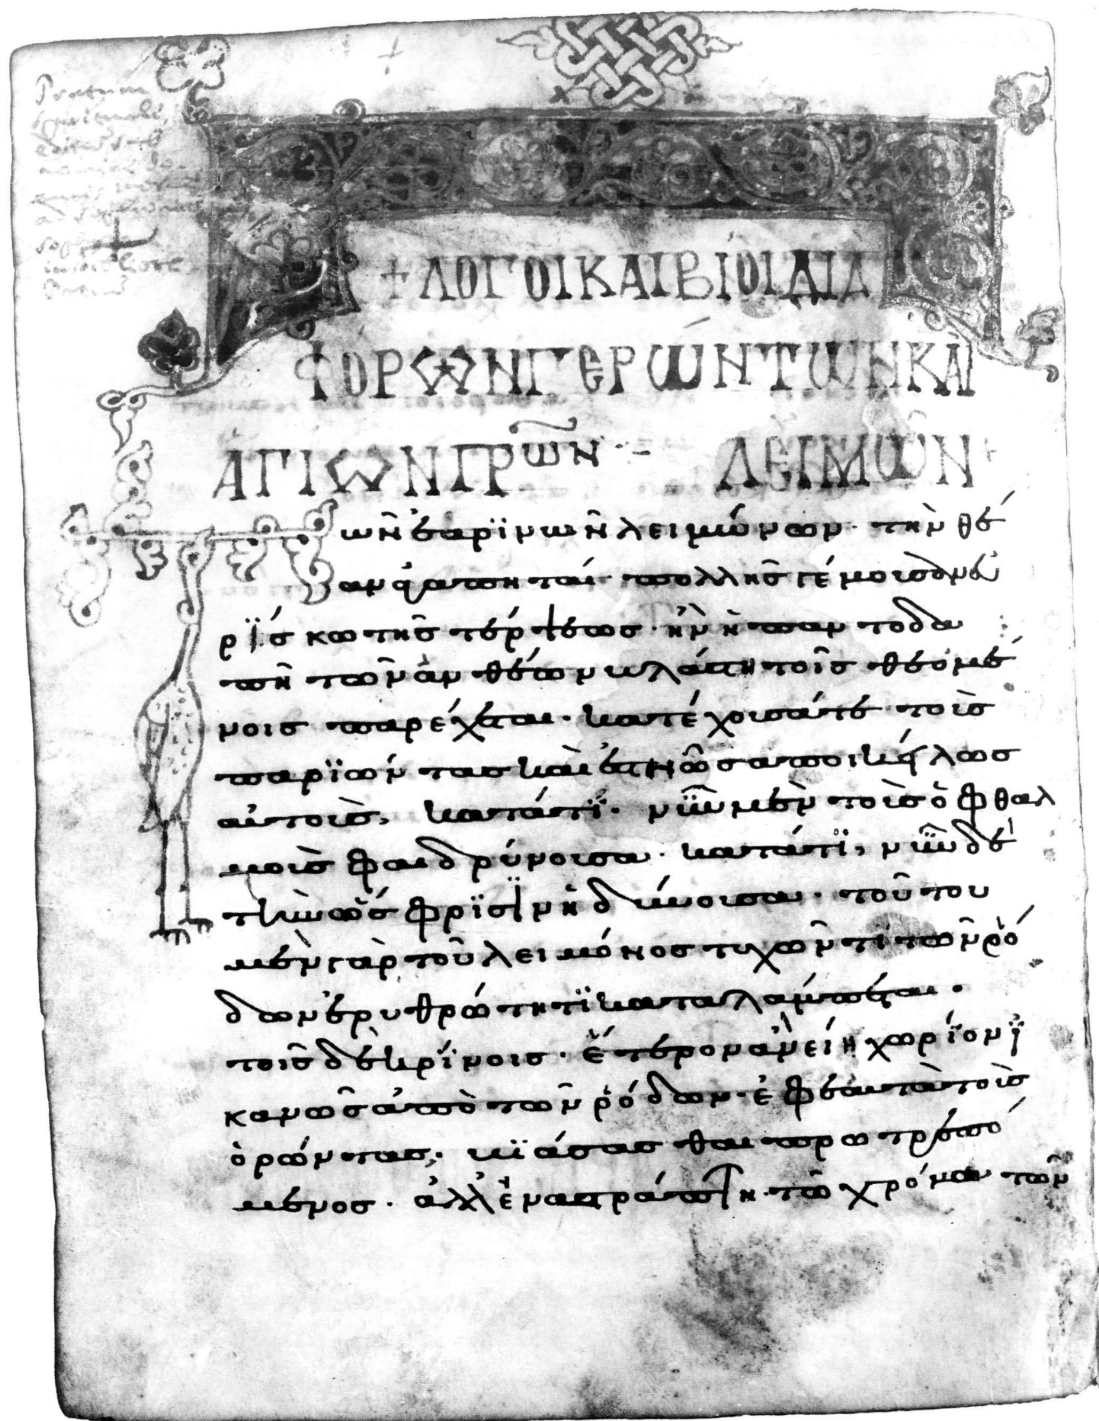 + ΛΟΓΟΙ ΚΑΙ ΒΙΟΙ ΔΙΑ
ΦΟΡΩΝ ΓΕΡΩΝΤΩΝ ΚΑΙ
ΑΓΙΩΝ ΠΡῶν · – ΛΕΙΜΩΝ +
Τῶν ἐαρϊνῶν λειμώνων · τὴν θέ
αν
ρϊάς κ τῆς τέρψεως · ἣν ἡ παντοδα
πῆ τῶν ἀνθέων τοῖς θεομέ
νοις παρέχεται · κατέχουσά τε τοὺς
παρϊόντας καὶ ποικίλως
αὐτοὺς, κατάτϊ · νῦν μὲν τοὺς ὀφθαλ
μοὺς φαιδρύνουσα · κατάτϊ, νῦν δὲ
τὴν ὄσφρϊσϊν ἡδύνουσα · τούτου
μὲν γὰρ τοῦ λειμόνος τυχῶν τῶν ῥό
δων ἐρυθρώτητϊ καταλάμπεται ·
τοῖς δὲ κρίνοις · ἕτερον ἂν εἴη χωρίον ϊ
κανῶς ἀπὸ τῶν ῥόδων · ἐφ τοὺς
ὁρώντας, κϊάσασθαι πρωτρεπό
μενος · ἀλλ ἐναπτράπτη · τῶ χρόμα τῶν